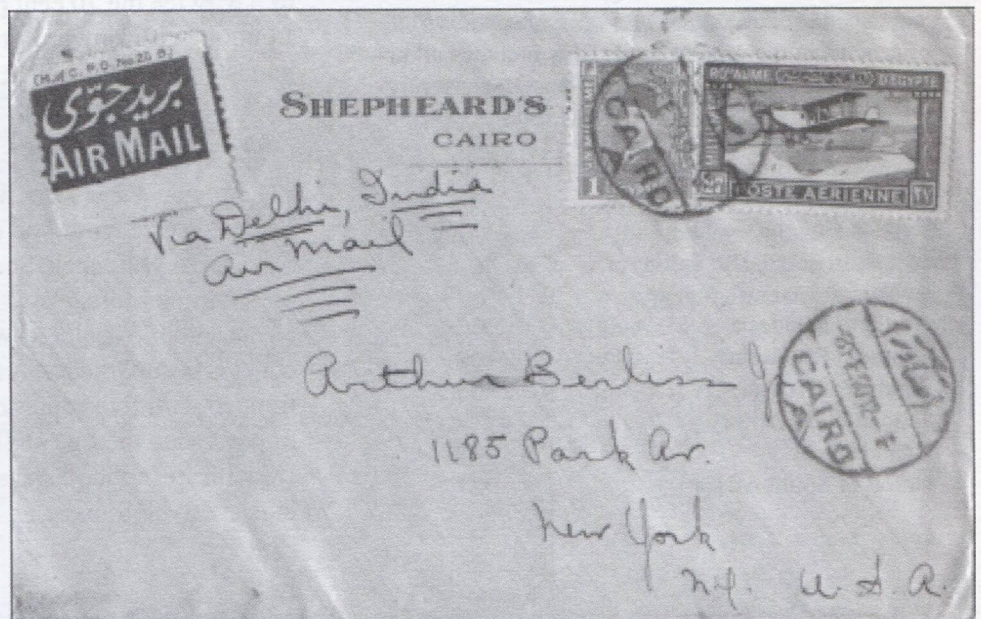 بريد جوى
AIR MAIL
SHEPHEARD'S
CAIRO
ROYAUME D'EGYPTE
CAIRO
1
27 POSTE AERIENNE ٢٧
Via Delhi, India
Air Mail
Arthur Berliss Jr.
1185 Park Av.
New York
N.Y. U.S.A.
CAIRO